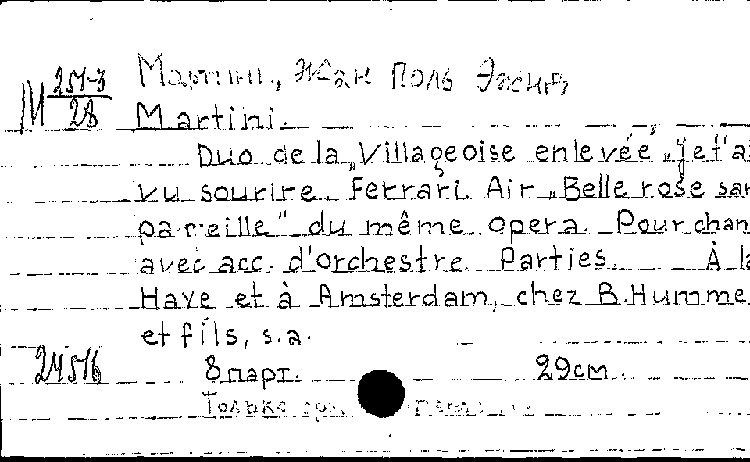 М 251-3/28
Мартини, Жан Поль Эжид
Martini.
Duo de la „Villageoise enlevée „je t'ai
vu sourire. Ferrari. Air „Belle rose san
pareille" du même opera. Pour chan
avec acc. d'orchestre. Parties. À la
Haye et à Amsterdam, chez B. Humme
et fils, s.a.
24516 8 парт. 29 см.
Только